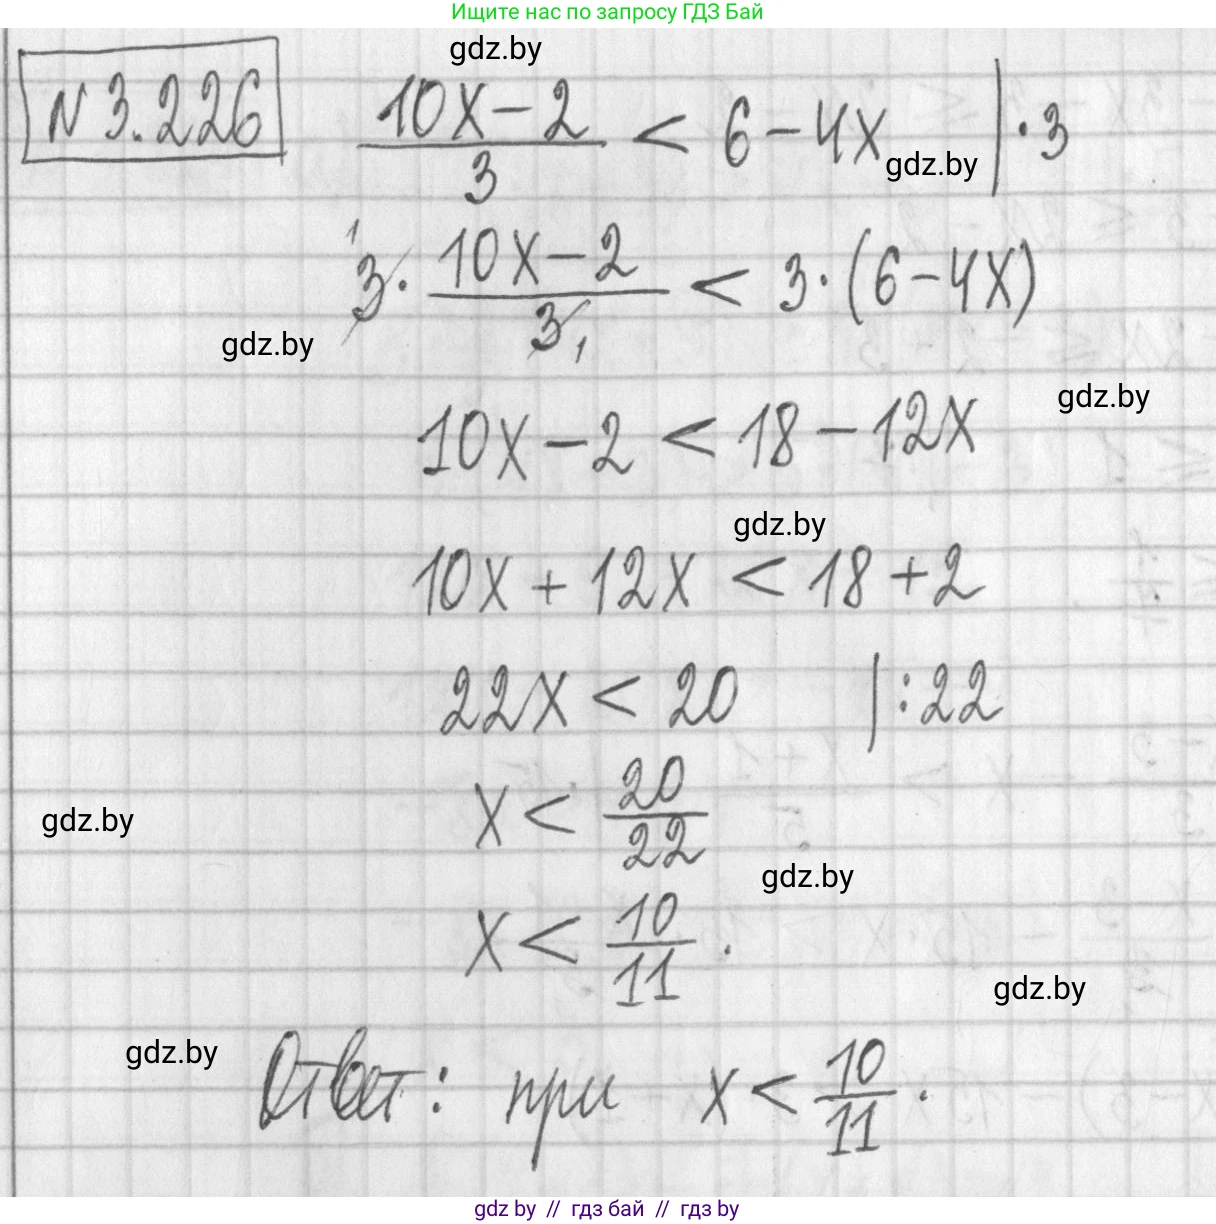 Ищите нас по запросу ГДЗ Бай
gdz.by
N 3.226
(10x-2)/3 < 6-4x | ·3
gdz.by
1
3 · (10x-2)/3 < 3·(6-4x)
1
gdz.by
gdz.by
10x-2 < 18-12x
gdz.by
10x+12x < 18+2
22x < 20 | :22
x < 20/22
gdz.by
gdz.by
x < 10/11.
gdz.by
gdz.by
Ответ: при x < 10/11.
gdz.by // гдз бай // гдз by